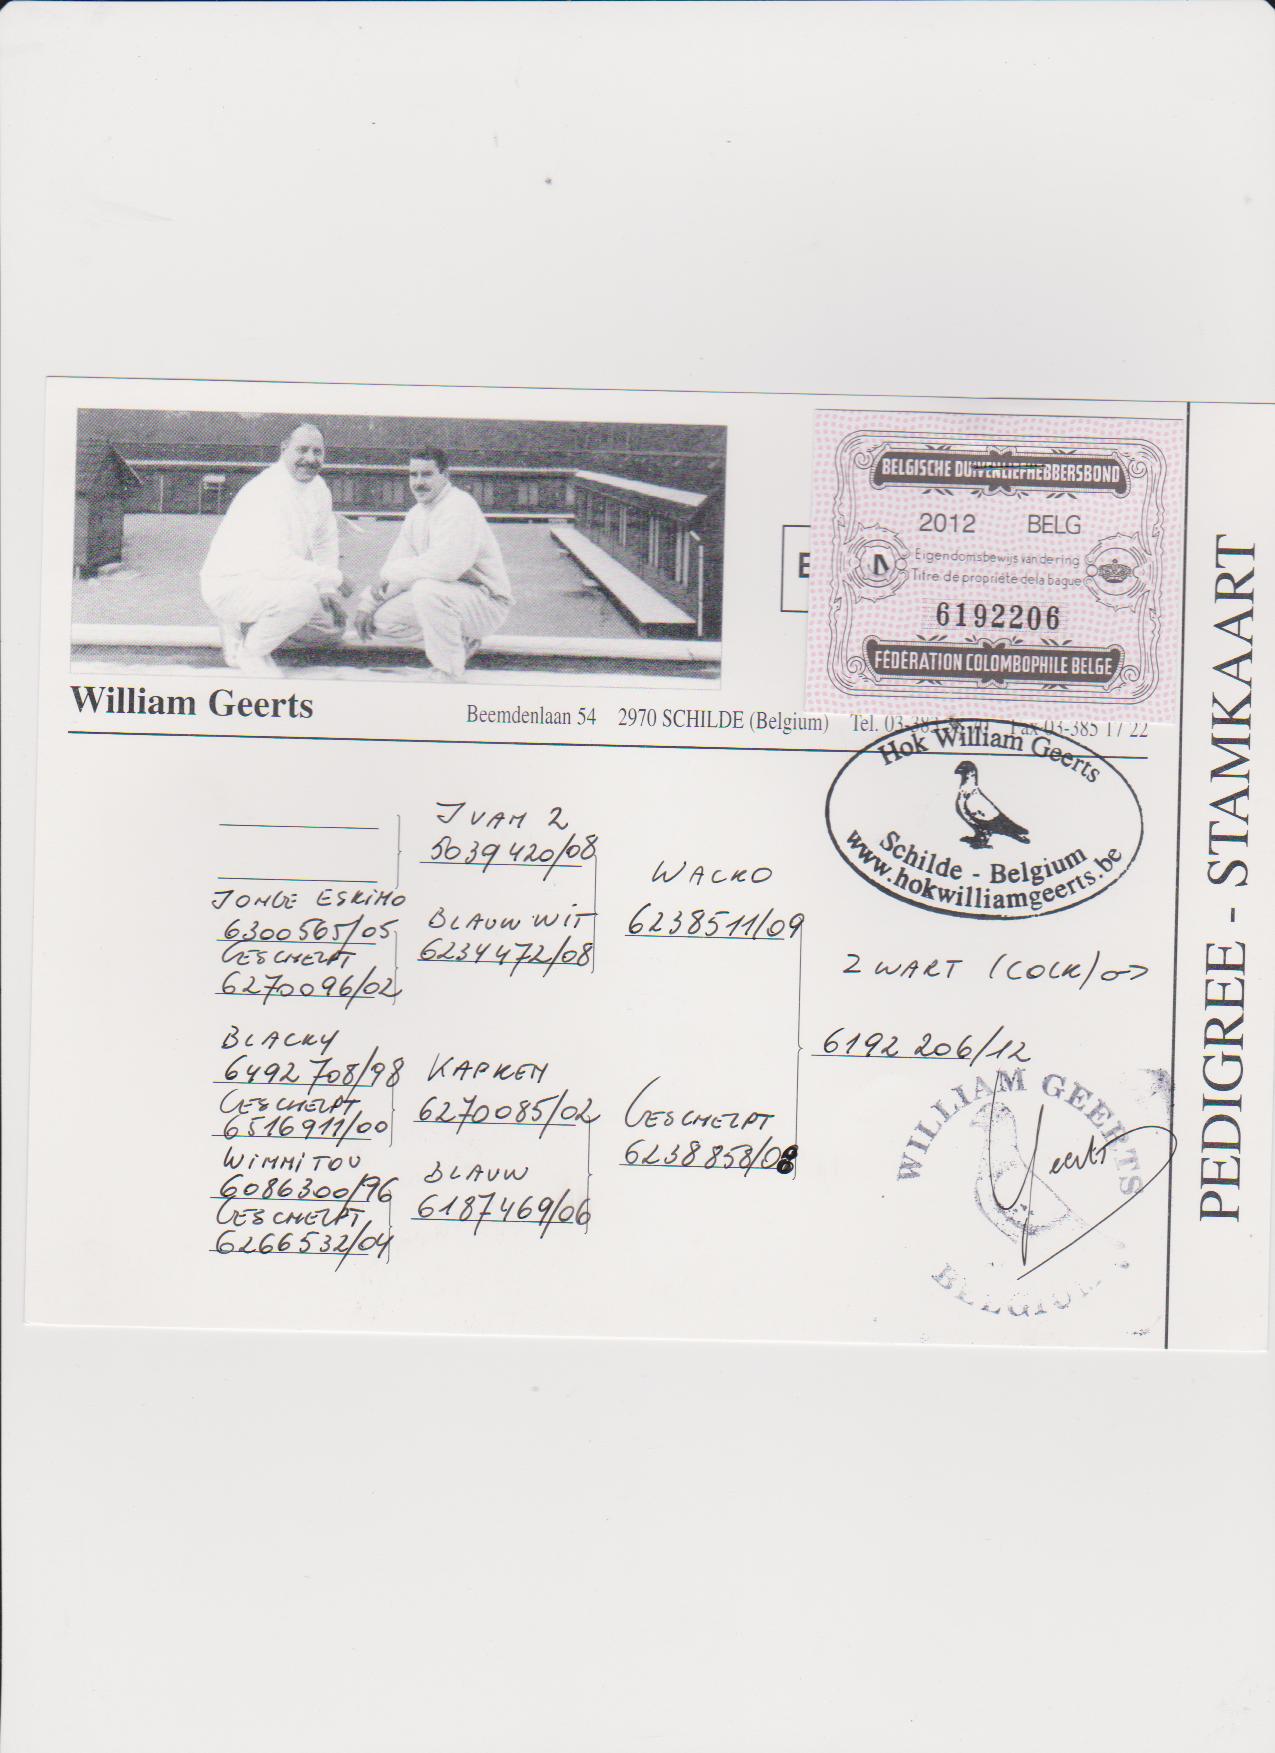 BELGISCHE DUIVENLIEFHEBBERSBOND
2012 BELG
Eigendomsbewijs van de ring
Titre de propriete de la bague
6192206
FÉDÉRATION COLOMBOPHILE BELGE
William Geerts
Beemdenlaan 54 2970 SCHILDE (Belgium) Tel. 03-383 Fax 03-385 17 22
Hok William Geerts
Schilde - Belgium
www.hokwilliamgeerts.be
PEDIGREE - STAMKAART
IVAN 2
5039420/08
JONGE ESKIMO
6300565/05
GESCHELPT
6270096/02
BLAUW WIT
6234472/08
WACKO
6238511/09
ZWART (COCK)
6192206/12
BLACKY
6492708/98
GESCHELPT
6516911/00
KAPKEN
6270085/02
WIMMITOU
6086300/96
GESCHELPT
6266532/04
BLAUW
6187469/06
GESCHELPT
6238858/08
WILLIAM GEERTS
BELGIUM
Geerts